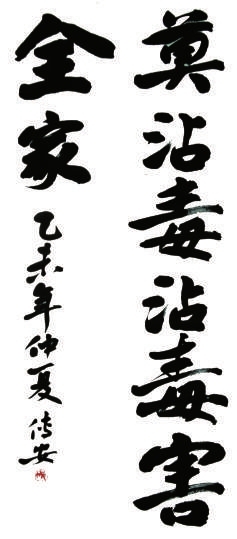 莫沾毒沾毒害
全家
乙未年仲夏 传安